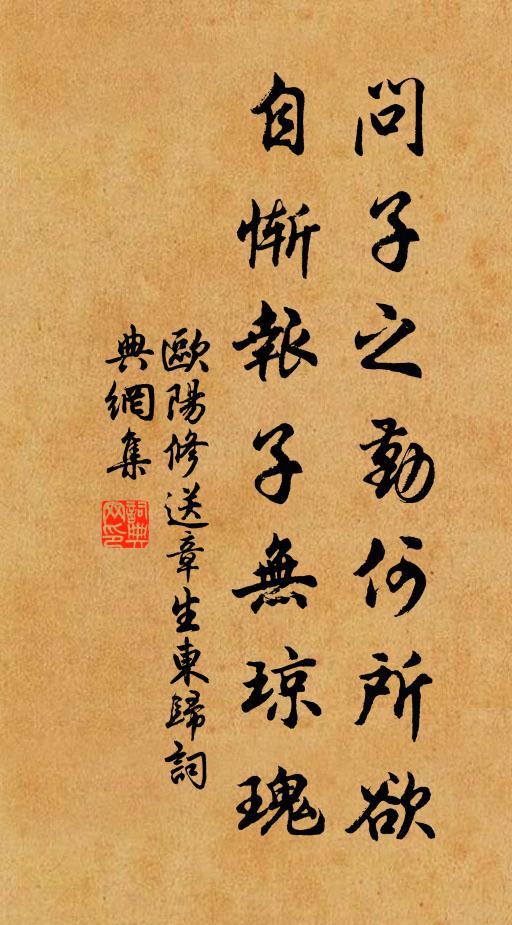 問子之勤何所欲
自慚報子無琼瑰
歐陽修送章生東歸詞
典網集
詞典網印